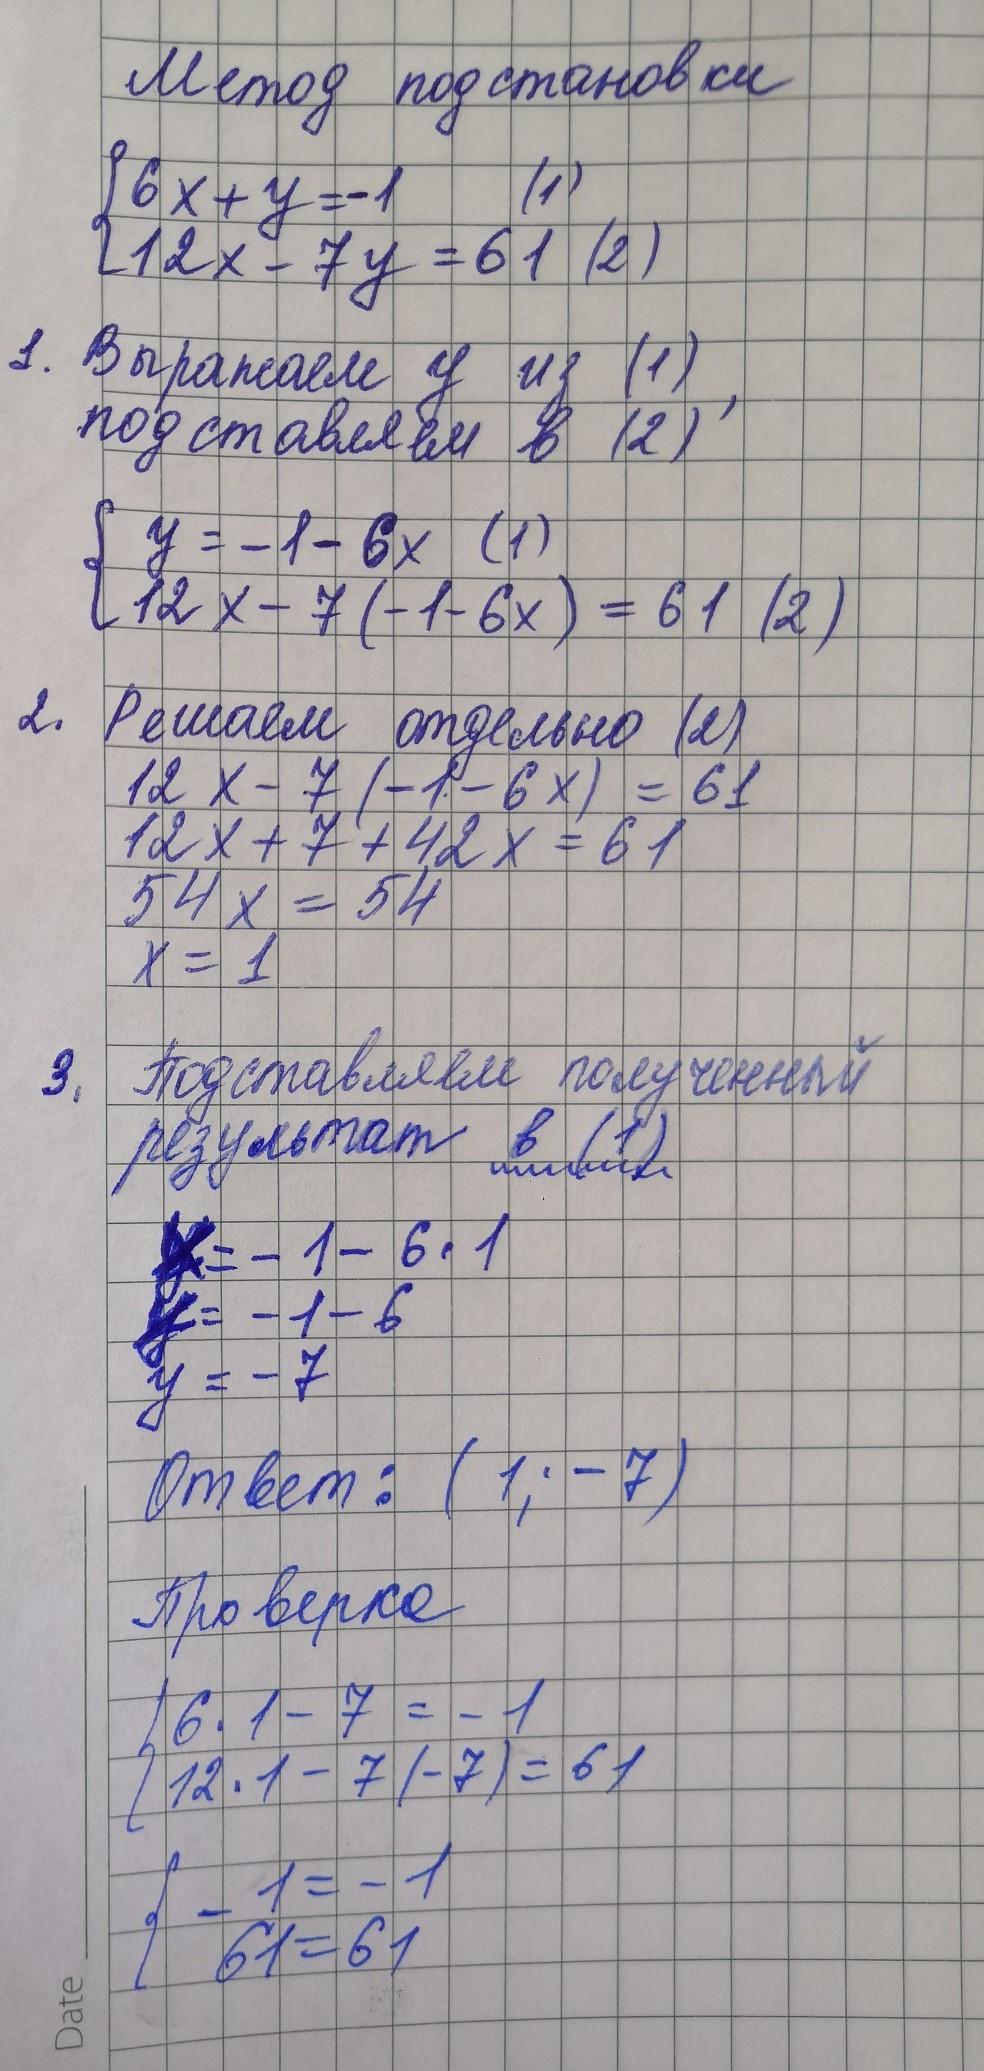 Метод подстановки
{6x+y=-1 (1)
{12x-7y=61 (2)
1. Выражаем y из (1),
подставляем в (2)
{y=-1-6x (1)
{12x-7(-1-6x)=61 (2)
2. Решаем отдельно (2)
12x-7(-1-6x)=61
12x+7+42x=61
54x=54
x=1
3. Подставляем полученный
результат в (1)
y=-1-6·1
y=-1-6
y=-7
Ответ: (1;-7)
Проверка
{6·1-7=-1
{12·1-7(-7)=61
{-1=-1
{61=61
Date